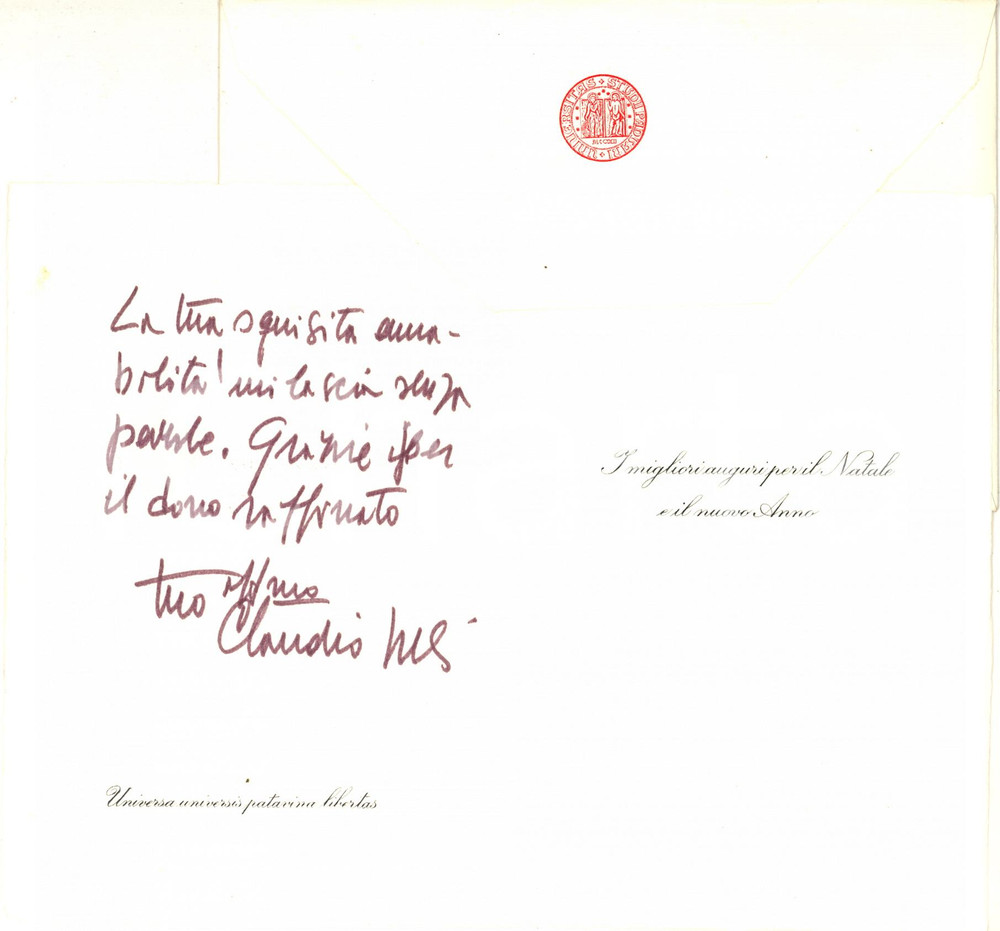 UNIVERSITAS STUDII PADUANI
MCCXXII
La tua squisita ama-
bilità mi lascia senza
parole. Grazie per
il dono raffinato
tuo affmo
Claudio
I migliori auguri per il Natale
e il nuovo Anno
Universa universis patavina libertas